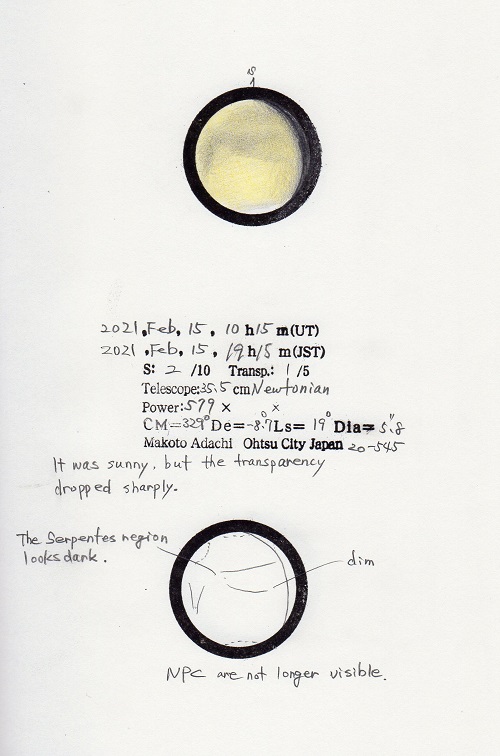 S
2021, Feb, 15, 10 h 15 m (UT)
2021, Feb, 15, 19 h 15 m (JST)
S: 2 /10 Transp.: 1 /5
Telescope: 35.5 cm Newtonian
Power: 579 × ×
CM=329° De=-8.7° Ls= 19° Dia= 5.8"
Makoto Adachi Ohtsu City Japan 20-545
It was sunny, but the transparency
dropped sharply.
The Serpentes region
looks dark.
dim
NPC are not longer visible.